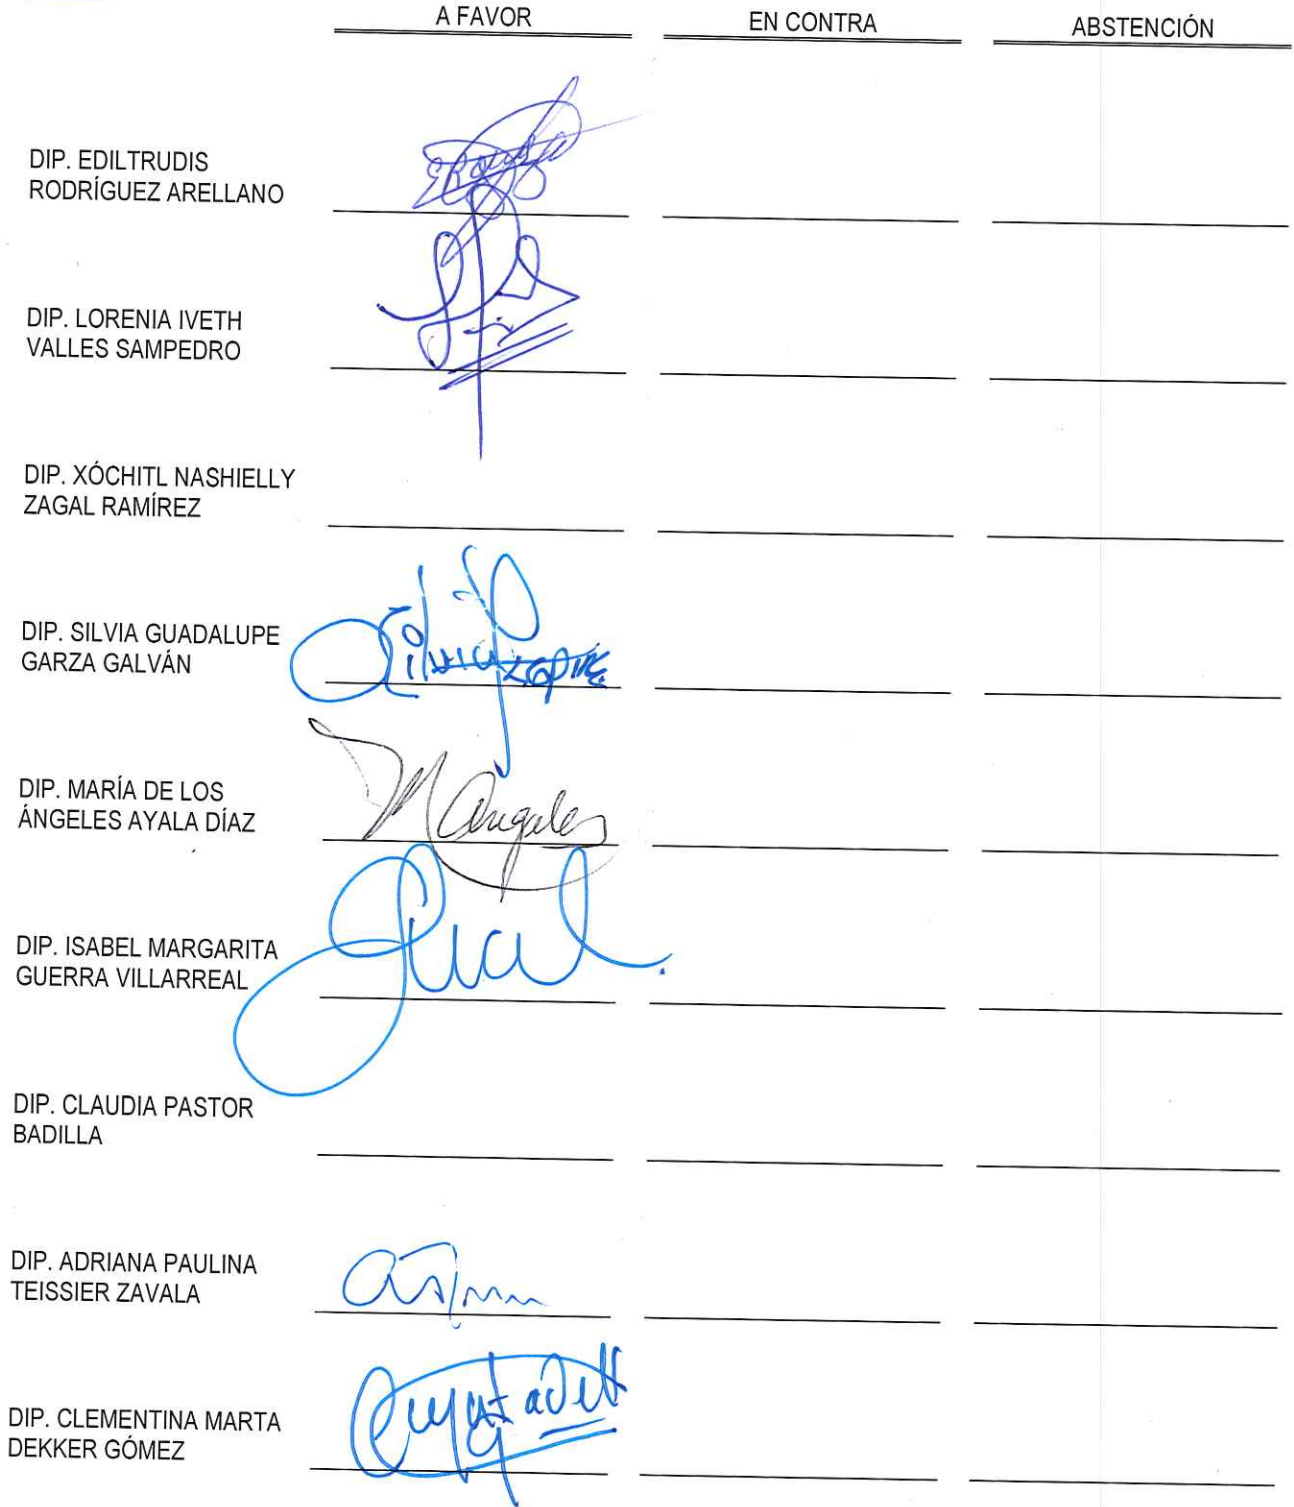 A FAVOR EN CONTRA ABSTENCIÓN
DIP. EDILTRUDIS
RODRÍGUEZ ARELLANO
DIP. LORENIA IVETH
VALLES SAMPEDRO
DIP. XÓCHITL NASHIELLY
ZAGAL RAMÍREZ
DIP. SILVIA GUADALUPE
GARZA GALVÁN
Silvia
DIP. MARÍA DE LOS
ÁNGELES AYALA DÍAZ
M Angeles
DIP. ISABEL MARGARITA
GUERRA VILLARREAL
DIP. CLAUDIA PASTOR
BADILLA
DIP. ADRIANA PAULINA
TEISSIER ZAVALA
DIP. CLEMENTINA MARTA
DEKKER GÓMEZ